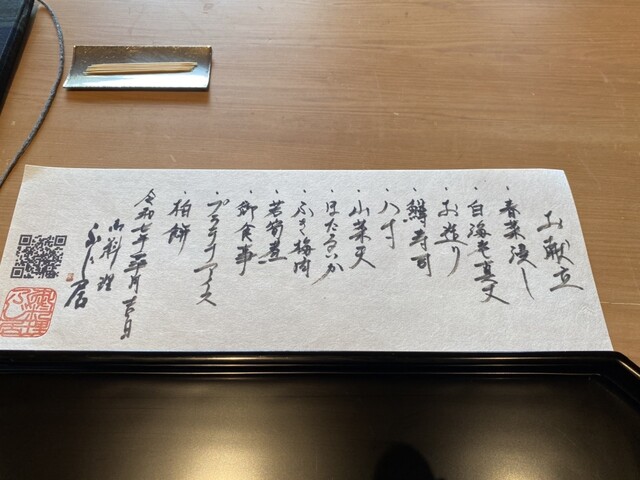 お献立
・春菜浸し
・白海老真丈
・お造り
・鱒寿司
・八寸
・山菜天
・ほたるいか
・ふき梅肉
・若筍煮
・御食事
・プラチナアイス
・柏餅
令和七年 月吉日
御料理
ふじ居